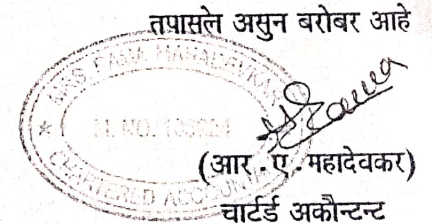 तपासले असुन बरोबर आहे
M. NO.
CHARTERED ACCOUNTANT
(आर . ए . महादेवकर)
चार्टर्ड अकौन्टन्ट